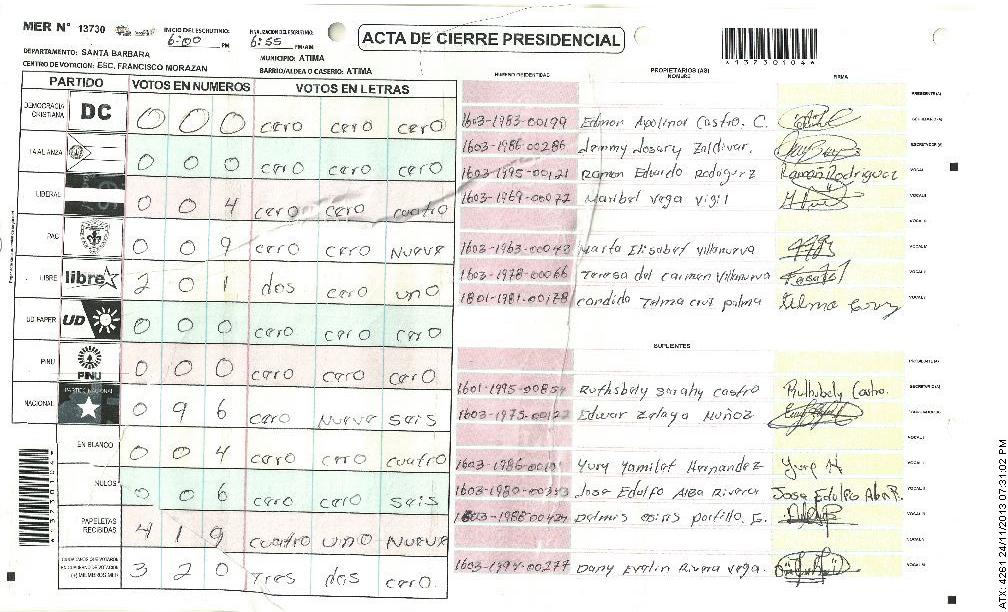 MER N° 13730
INICIO DEL ESCRUTINIO:
6:00 PM
FINALIZACION DEL ESCRUTINIO:
6:55 PM-AM
ACTA DE CIERRE PRESIDENCIAL
DEPARTAMENTO: SANTA BARBARA
MUNICIPIO: ATIMA
CENTRO DE VOTACION: ESC. FRANCISCO MORAZAN
BARRIO/ALDEA O CASERIO: ATIMA
*13730104*
PARTIDO VOTOS EN NUMEROS VOTOS EN LETRAS
DEMOCRACIA CRISTIANA DC 0 0 0 cero cero cero
LA ALIANZA 0 0 0 cero cero cero
LIBERAL 0 0 4 cero cero cuatro
PAC 0 0 9 cero cero NUEVE
LIBRE libre 2 0 1 dos cero uno
UD FAPER UD 0 0 0 cero cero cero
PINU PINU 0 0 0 cero cero cero
NACIONAL PARTIDO NACIONAL 0 9 6 cero NUEVE seis
EN BLANCO 0 0 4 cero cero cuatro
NULOS 0 0 6 cero cero seis
PAPELETAS RECIBIDAS 4 1 9 cuatro uno NUEVE
3 2 0 Tres dos cero
NUMERO DE IDENTIDAD PROPIETARIOS (AS) NOMBRE FIRMA
PRESIDENTE(A)
1603-1983-00199 Edman Apolinar Castro. C.
1603-1986-00286 Jemmy Josary Zaldivar. SECRETARIO(A)
1603-1995-00121 Ramon Eduardo Rodrigerz Ramon Rodriguez VOCAL I
1603-1969-00072 Maribel vega vigil
1603-1963-00043 Marta Elisabet Villanueva
1603-1978-00066 Teresa del carmen Villanueva
1801-1981-00178 candida Telma cruz palma Telma cruz
SUPLENTES
PRESIDENTE(A)
1601-1995-00854 Ruthsbely Sarahy castro Ruthsbely Castro. SECRETARIO(A)
1603-1975-00122 Edwar Zelaya Muñoz
Yury Yamilet Hernandez Yury H
1603-1980-00353 Jose Edulfo Alba Rivera Jose Edulfo Alba R.
1603-1988-00424 Delmis osiris portillo. G.
1603-1994-00277 Dany Evelin Rivera vega.
*13730104*
ATX: 4261 24/11/2013 07:31:02 PM